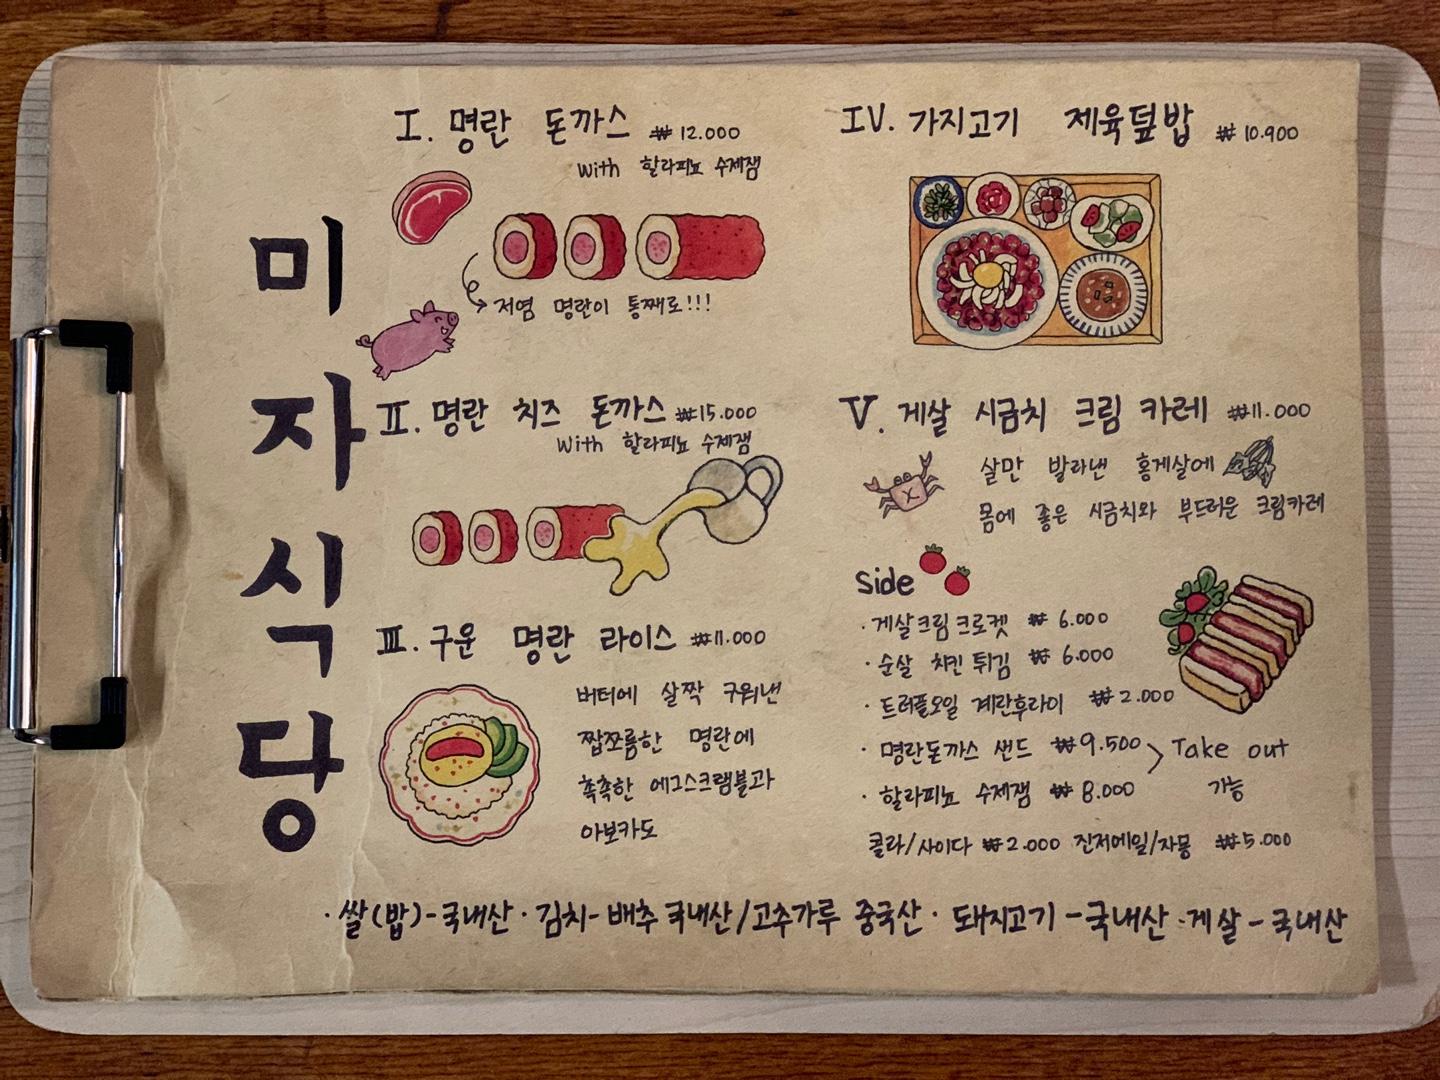 미자식당
I. 명란 돈까스 ₩12.000
with 할라피뇨 수제잼
저염 명란이 통째로!!!
II. 명란 치즈 돈까스 ₩15.000
with 할라피뇨 수제잼
III. 구운 명란 라이스 ₩11.000
버터에 살짝 구워낸
짭쪼름한 명란에
촉촉한 에그스크램블과
아보카도
IV. 가지고기 제육덮밥 ₩10.900
V. 게살 시금치 크림 카레 ₩11.000
살만 발라낸 홍게살에
몸에 좋은 시금치와 부드러운 크림카레
side
· 게살크림크로켓 ₩6.000
· 순살 치킨 튀김 ₩6.000
· 트러플오일 계란후라이 ₩2.000
· 명란돈까스 샌드 ₩9.500 > Take out
· 할라피뇨 수제잼 ₩8.000 가능
콜라/사이다 ₩2.000 진저에일/자몽 ₩5.000
· 쌀(밥)-국내산 · 김치-배추 국내산/고추가루 중국산 · 돼지고기-국내산 ·게살-국내산